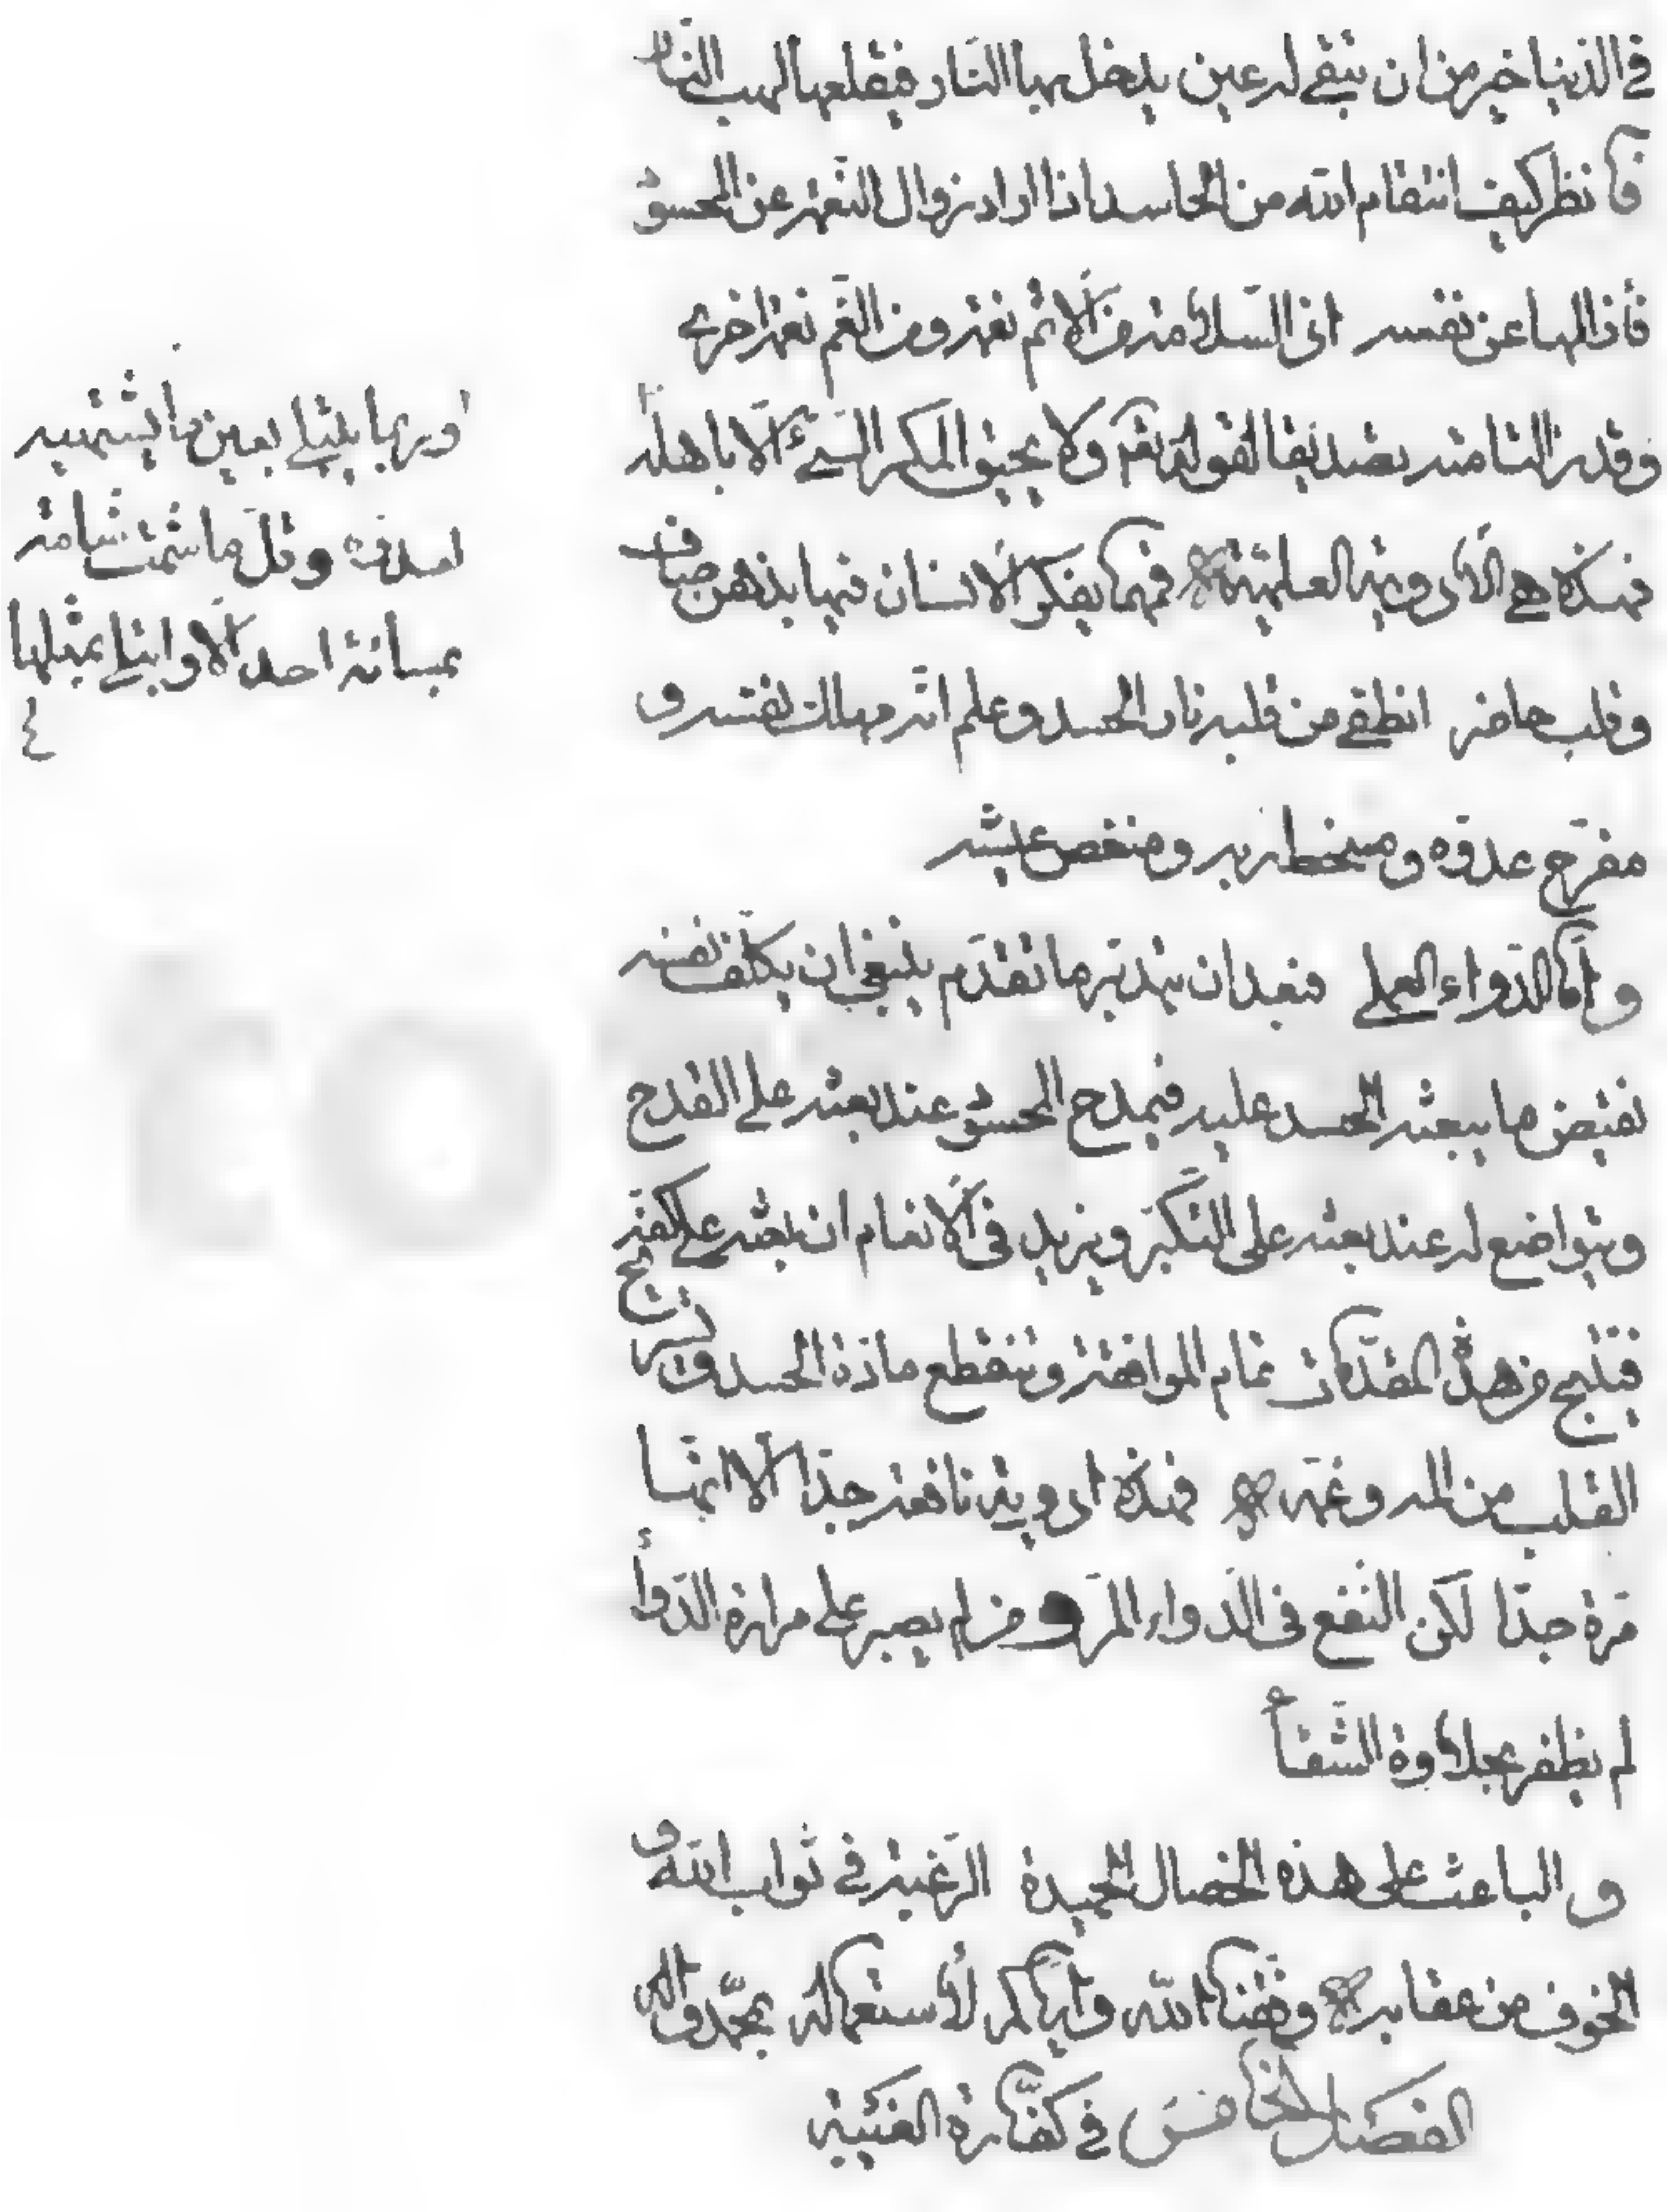 في الدنيا خير من ان تبقى له عين يدخل بها النار فيقلعها لهيب النار
فانظر كيف انتقام الله من الحاسد اذا اراد زوال النعمة عن المحسود
فأزالها عن نفسه اذ السلامة من الاثم نعمة ومن الغم نعمة اخرى
وقد زالتا منه تصديقا لقوله تعالى ولا يحيق المكر السيئ الا باهله
فهذه هي الأدوية العلمية فمهما يفكر الانسان فيها بذهن صاف
وقلب حاضر انطفى من قلبه نار الحسد وعلم انه مهلك نفسه و
مفرح عدوه ومسخط ربه ومنغص عيشه
وأما الدواء العملي فبعد ان يتدبر ما تقدم ينبغي ان يكلف نفسه
نقيض ما يبعثه الحسد عليه فيمدح المحسود عند بعثه على القدح
ويتواضع له عند بعثه على التكبر ويزيد في الانعام ان بعثه على كفه
فينتج من هذه المقدمات تمام الموافقة وتنقطع مادة الحسد ويستريح
القلب من المه وغمه فهذه ادوية نافعة جدا الا انها
مرة جدا لكن النفع في الدواء المر ومن لم يصبر على مرارة الدواء
لم يظفر بحلاوة الشفاء
و الباعث على هذه الخصال الحميدة الرغبة في ثواب الله و
الخوف من عقابه وفقنا الله واياكم لأستعماله بمحمد وآله
الفصل الخامس في كفارة الغيبة
وربما يبتلى بعين ما يشتهيه
لعدوه وقل ما شمت شامت
بمساءة احد الا وابتلى بمثلها
٤